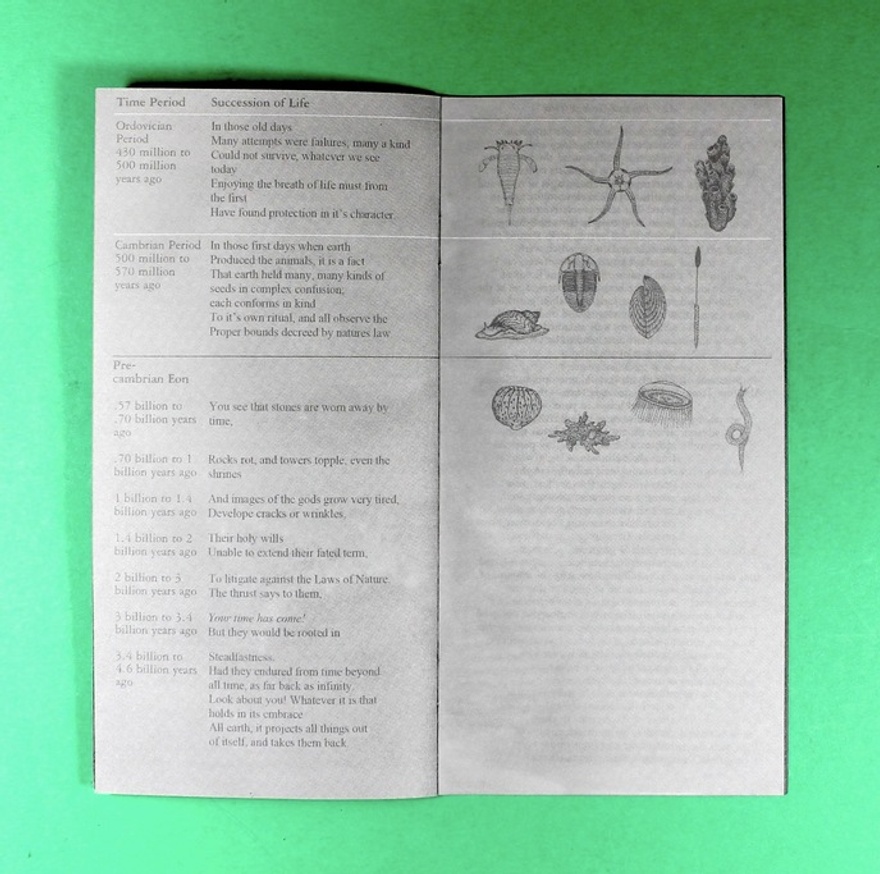 Time Period Succession of Life
Ordovician
Period
430 million to
500 million
years ago
In those old days
Many attempts were failures, many a kind
Could not survive, whatever we see
today
Enjoying the breath of life must from
the first
Have found protection in it's character.
Cambrian Period
500 million to
570 million
years ago
In those first days when earth
Produced the animals, it is a fact
That earth held many, many kinds of
seeds in complex confusion;
each conforms in kind
To it's own ritual, and all observe the
Proper bounds decreed by natures law
Pre-
cambrian Eon
.57 billion to
.70 billion years
ago
You see that stones are worn away by
time,
.70 billion to 1
billion years ago
Rocks rot, and towers topple, even the
shrines
1 billion to 1.4
billion years ago
And images of the gods grow very tired,
Develope cracks or wrinkles,
1.4 billion to 2
billion years ago
Their holy wills
Unable to extend their fated term,
2 billion to 3
billion years ago
To litigate against the Laws of Nature.
The thrust says to them,
3 billion to 3.4
billion years ago
Your time has come!
But they would be rooted in
3.4 billion to
4.6 billion years
ago
Steadfastness.
Had they endured from time beyond
all time, as far back as infinity.
Look about you! Whatever it is that
holds in its embrace
All earth, it projects all things out
of itself, and takes them back